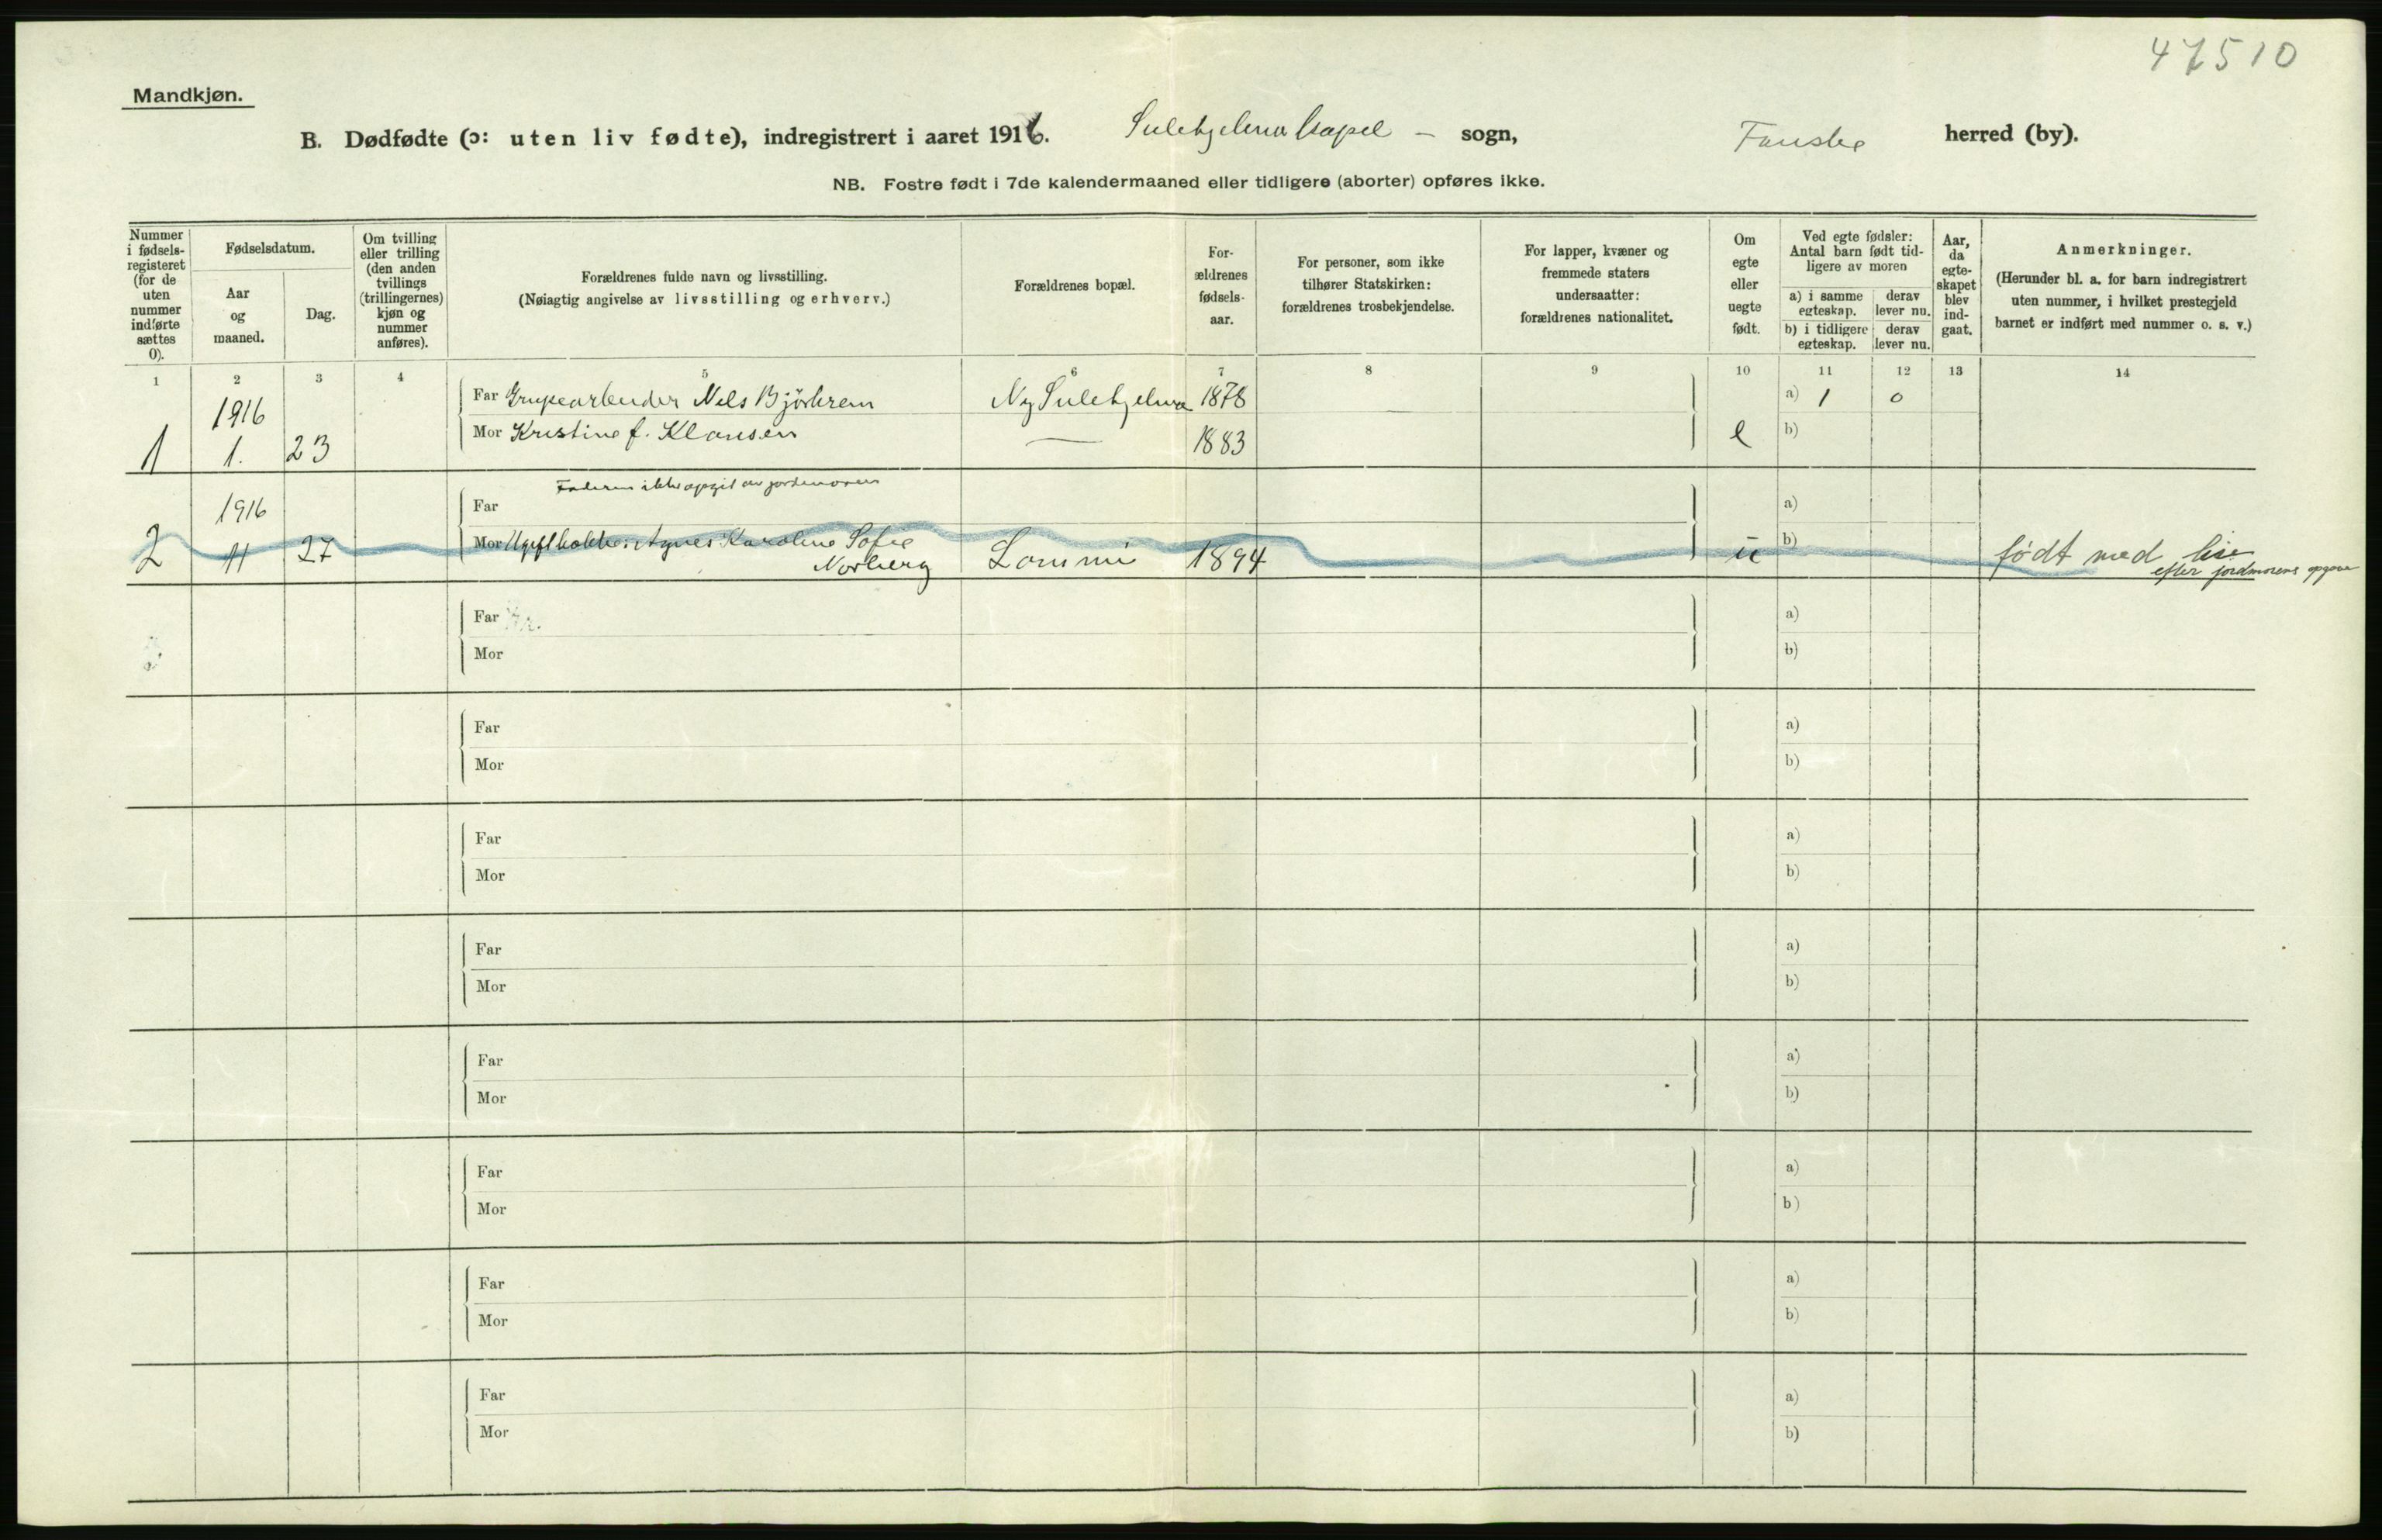 47510
Mandkjøn.
B. Dødfødte (ɔ: uten liv fødte), indregistrert i aaret 1916. Sulitjelma kapel – sogn, Fauske herred (by).
NB. Fostre født i 7de kalendermaaned eller tidligere (aborter) opføres ikke.
Nummer i fødsels-registeret (for de uten nummer indførte sættes 0).
Fødselsdatum.
Aar og maaned.
Dag.
Om tvilling eller trilling (den anden tvillings (trillingernes) kjøn og nummer anføres).
Forældrenes fulde navn og livsstilling.
(Nøiagtig angivelse av livsstilling og erhverv.)
Forældrenes bopæl.
For-ældrenes fødsels-aar.
For personer, som ikke tilhører Statskirken: forældrenes trosbekjendelse.
For lapper, kvæner og fremmede staters undersaatter: forældrenes nationalitet.
Om egte eller uegte født.
Ved egte fødsler: Antal barn født tid-ligere av moren
a) i samme egteskap. derav lever nu.
b) i tidligere egteskap. derav lever nu.
Aar, da egte-skapet blev ind-gaat.
Anmerkninger.
(Herunder bl. a. for barn indregistrert uten nummer, i hvilket prestegjeld barnet er indført med nummer o. s. v.)
1 2 3 4 5 6 7 8 9 10 11 12 13 14
1916 Far Grubearbeider Nils Bjørkrem Ny Sulitjelma 1878 a) 1 0
1 1. 23 Mor Kristine f. Klausen — 1883 e b)
Faderen ikke opgit av jordmoren
1916 Far a)
2 11 27 Mor Ugift kokke: Agnes Karoline Sofie Norberg Lommi 1894 u b) født med lise
efter jordmorens opgave
Far a)
Mor b)
Far a)
Mor b)
Far a)
Mor b)
Far a)
Mor b)
Far a)
Mor b)
Far a)
Mor b)
Far a)
Mor b)
Far a)
Mor b)